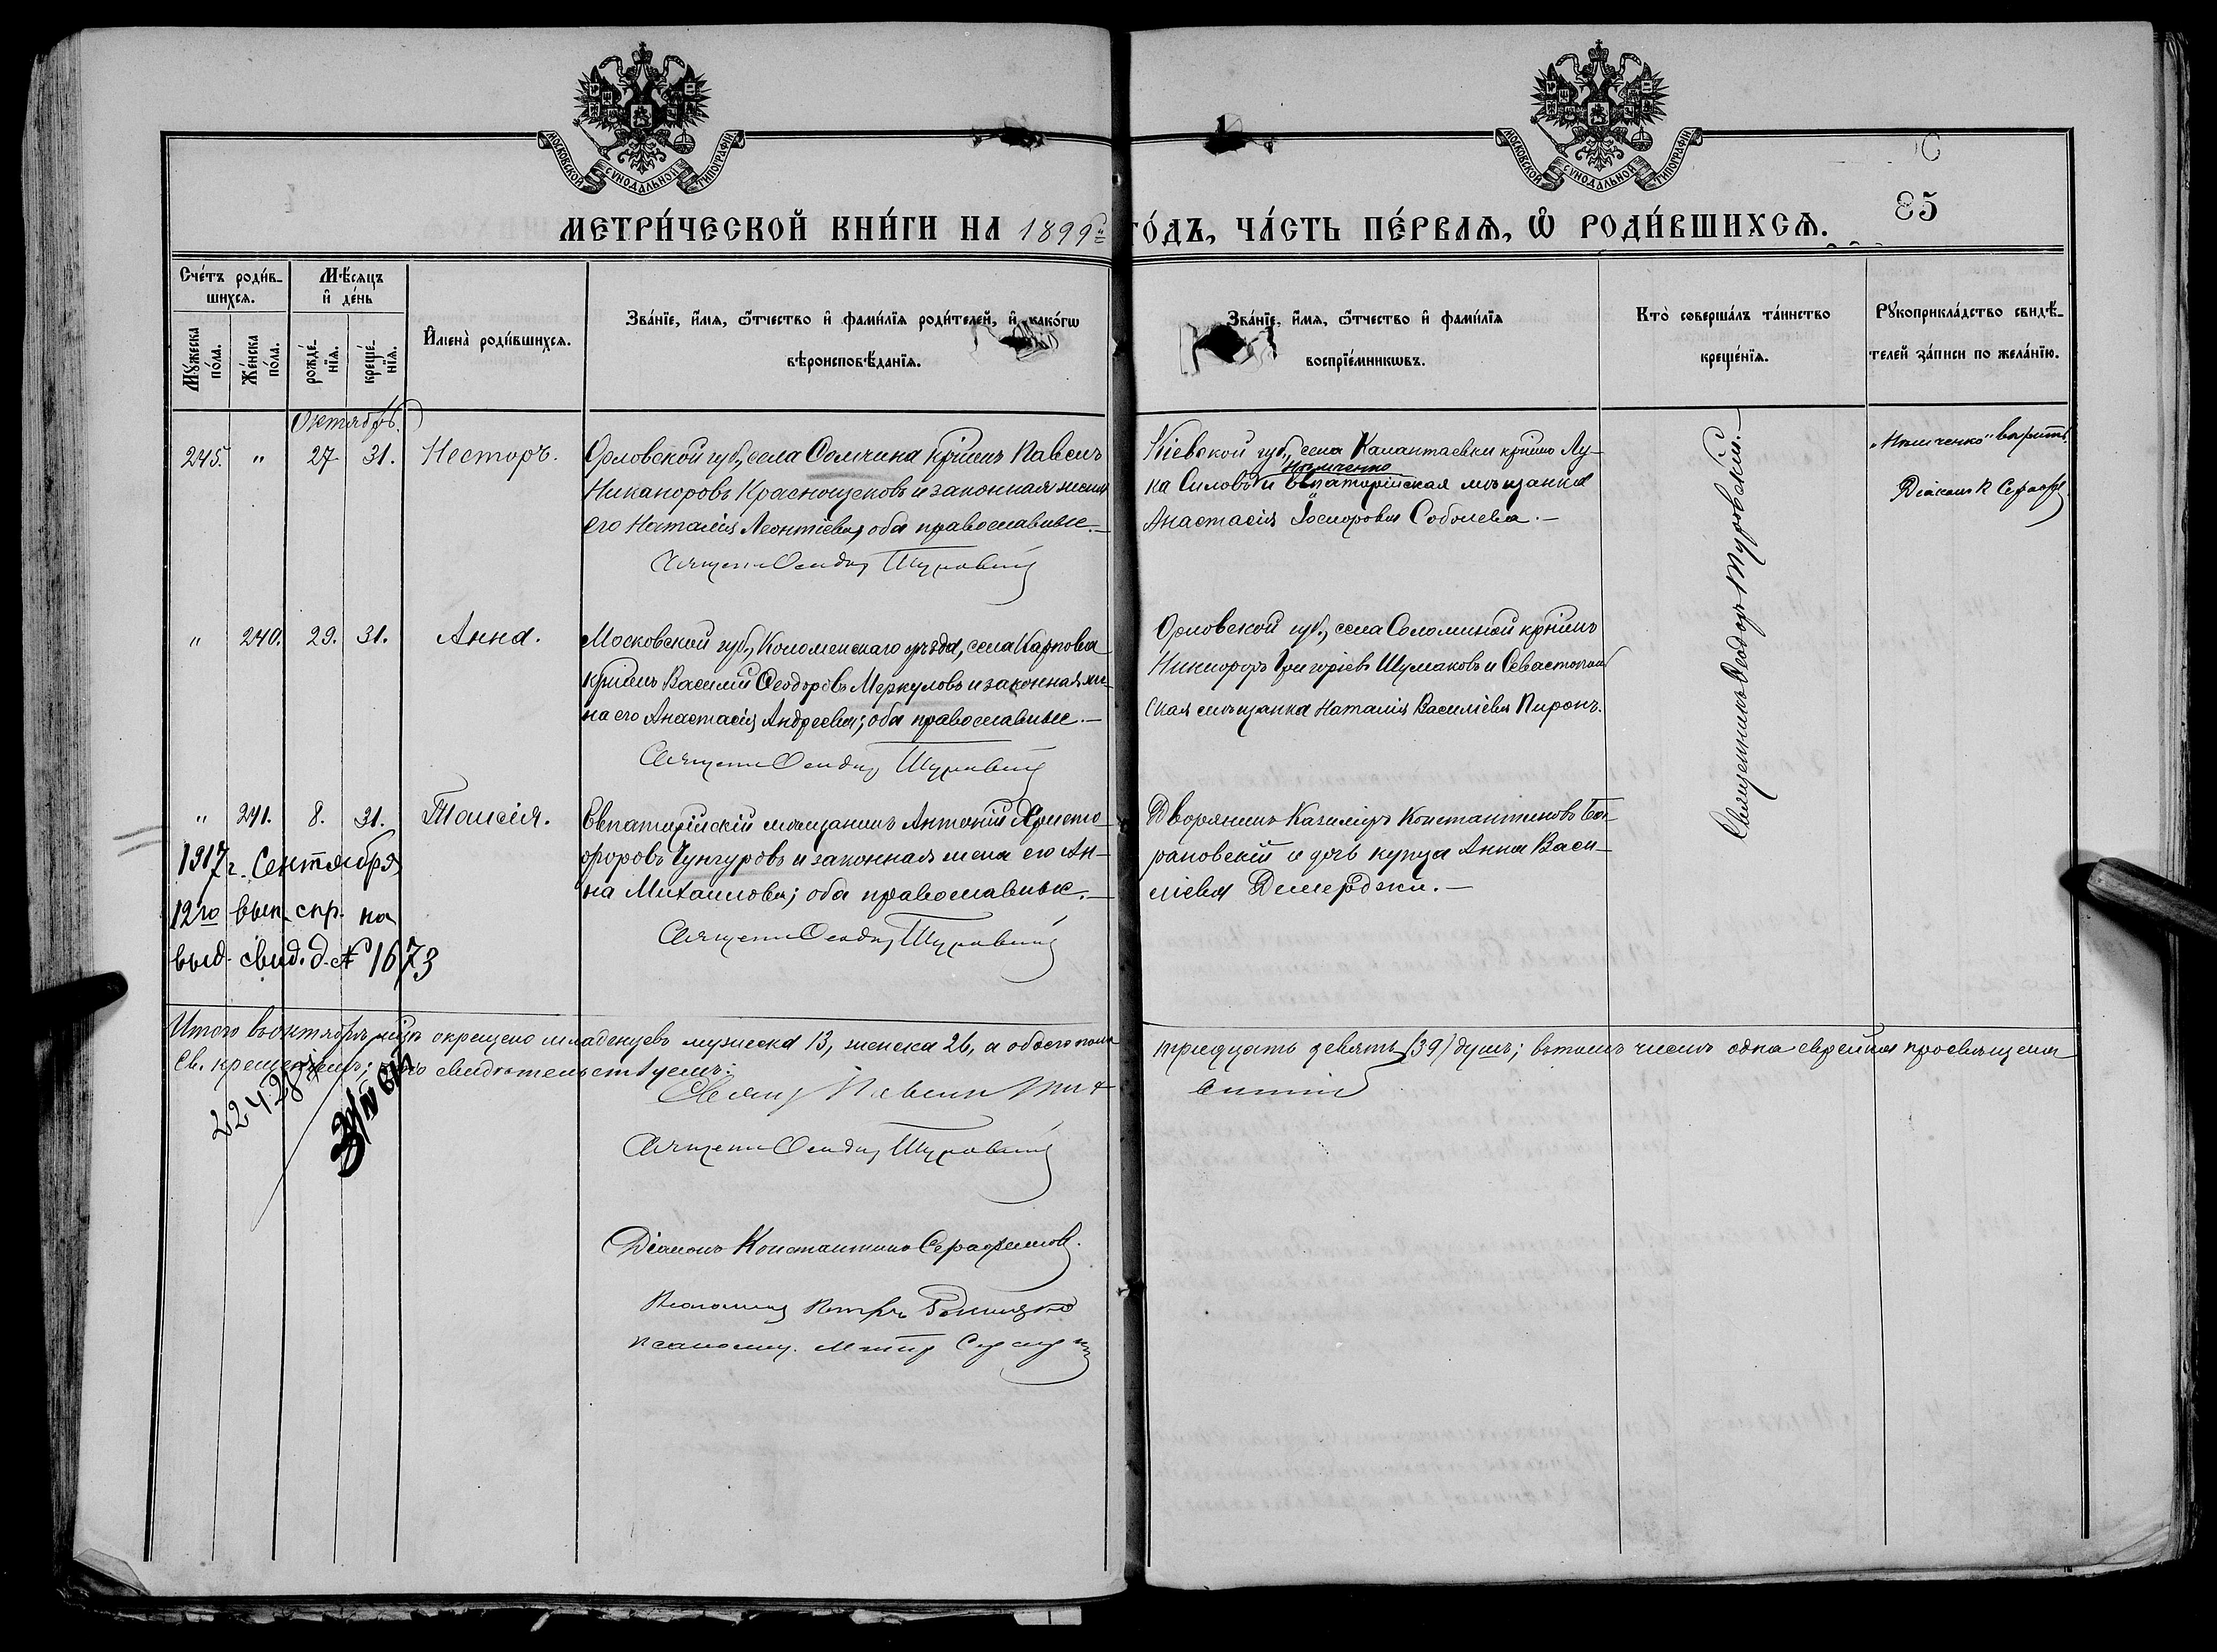 МОСКОВСКОЙ СѴНОДАЛЬНОЙ ТИПОГРАФІИ
МОСКОВСКОЙ СѴНОДАЛЬНОЙ ТИПОГРАФІИ
85
МЕТРИ́ЧЕСКОЙ КНИ́ГИ НА 1899й ГО́ДЪ, ЧА́СТЬ ПЕ́РВАЯ, Ѡ҆ РОДИ́ВШИХСЯ.
Сче́тъ роди́в-
шихся.
Мѣ́сяцъ
и҆ де́нь
Мꙋ́жеска
по́ла.
Же́нска
по́ла.
рожде́-
нїя.
креще́-
нїя.
И҆мена̀ роди́вшихся.
Зва́нїе, и҆́мя, ѻ҆́тчество и҆ фами́лїя роди́телей, и҆ како́гѡ
вѣроисповѣ́данїя.
Зва́нїе, и҆́мя, ѻ҆́тчество и҆ фами́лїя
воспрїе́мникѡвъ.
Кто̀ соверша́лъ та́инство
креще́нїя.
Рꙋкоприкла́дство свидѣ́-
телей за́писи по жела́нїю.
Октябрь.
245. " 27 31. Несторъ.
Орловской губ., села Сомчина кр҃інъ Павелъ
Никаноровъ Краснощековъ и законная жена
его Наталія Леонтіева, оба православные.—
Священ. Ѳеодор Туровскій
Кіевской губ., села Калантаевки кр҃інъ Лу-
Нѣмченко
ка Силовъ и Евпаторійская мѣщанка
Анастасія Іосифова Соболева.—
"Нѣмченко" вѣрить.
Діаконъ К Сераф
" 240. 29. 31. Анна.
Московской губ., Коломенскаго уѣзда, села Карпова
кр҃інъ Василій Ѳеодоровъ Меркуловъ и законная же-
на его Анастасія Андреева; оба православные.—
Священ. Ѳеодор Туровскій
Орловской губ., села Соломиной кр҃інъ
Никифоръ Григоріевъ Шумаковъ и Севастополь
ская мѣщанка Наталія Василіева Пиронъ.
Священникъ Ѳеодоръ Туровскій.—
" 241. 8. 31. Таисія.
Евпаторійскій мѣщанинъ Антоній Христо-
форовъ Чунгуровъ и законная жена его Ан-
на Михаилова; оба православные.—
Священ. Ѳеодор Туровскій
Дворянинъ Казиміръ Константиновъ Бо-
рановскій и дочь купца Анна Васи-
ліева Демерджи.—
1917 г. Сентября
12го вып. спр. на
выд. свид. д. № 1673
Итого въ октябрѣ мцѣ окрещено младенцевъ мужеска 13, женска 26, а обоего пола тридцать девять (39) душъ; въ томъ числѣ одна еврейка просвѣщена
Св. крещеніемъ; что свидѣтельствуемъ:
Священ. Ѳеодор Туровскій
Діаконъ Константинъ Серафимовъ.
Псаломщ. Петръ
псаломщ.